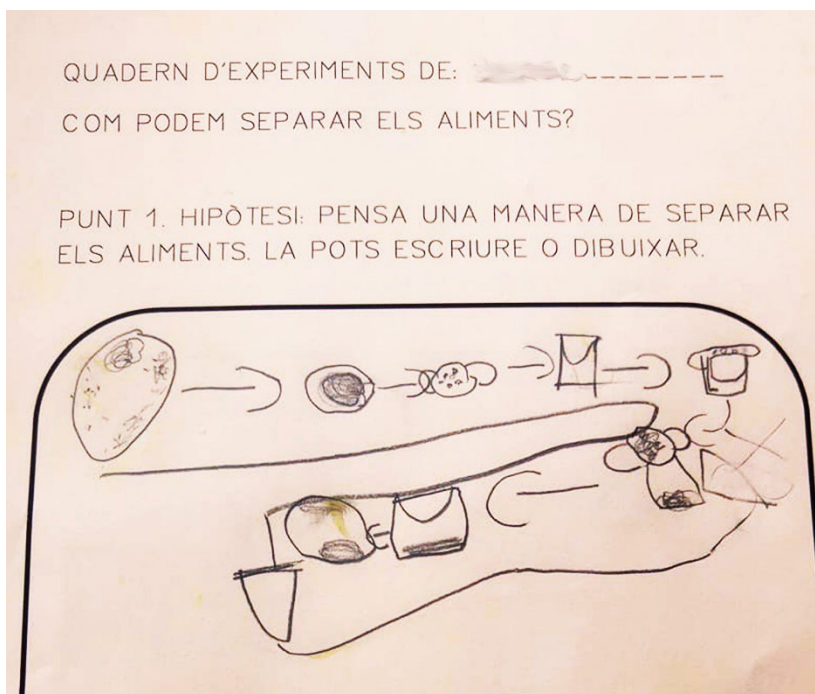 QUADERN D'EXPERIMENTS DE:
COM PODEM SEPARAR ELS ALIMENTS?
PUNT 1. HIPÒTESI: PENSA UNA MANERA DE SEPARAR
ELS ALIMENTS. LA POTS ESCRIURE O DIBUIXAR.